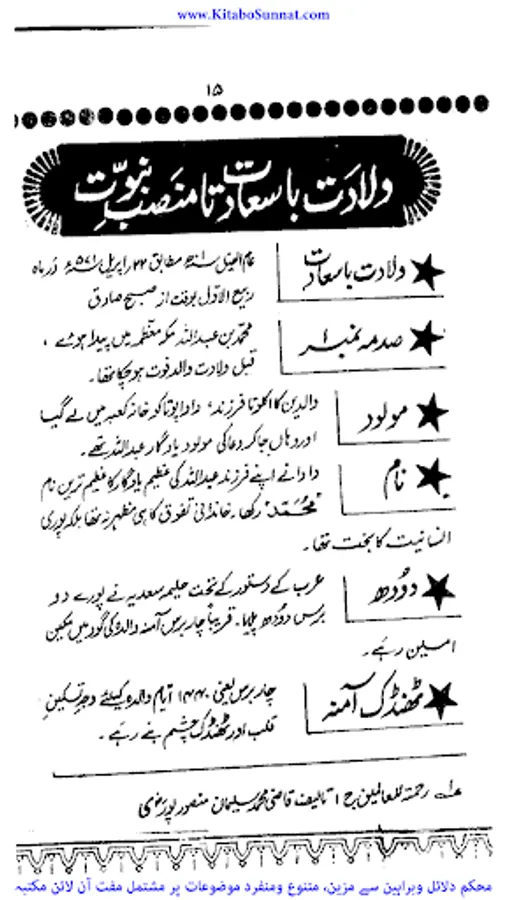 www.KitaboSunnat.com
۱۵
ولادت باسعادت تا منصب نبوت
★ ولادت باسعادت
عام الفیل ۱ مطابق ۲۲ راپریل ۵۷۱ء در ماہ
ربیع الاول بوقت از صبح صادق
★ صدمہ نمبر ۱
محمد بن عبداللہ مکہ معظمہ میں پیدا ہوئے ،
قبل ولادت والد فوت ہو چکا تھا۔
★ مولود
والدین کا اکلوتا فرزند، دادا پوتا کو خانہ کعبہ میں لے گیا
اور وہاں جا کر دعا کی مولود یادگار عبداللہ تھے۔
★ نام
دادا نے اپنے فرزند عبداللہ کی عظیم یادگار کا عظیم ترین نام
"محمد" رکھا۔ خاندانی تفوق کا ہی مظہر نہ تھا بلکہ پوری
انسانیت کا بخت تھا۔
★ دودھ
عرب کے دستور کے تحت حلیمہ سعدیہ نے پورے دو
برس دودھ پلایا۔ قریباً چار برس آمنہ والدہ کی گود میں مکین
امین رہے۔
★ ٹھنڈک آمنہ
چار برس یعنی ۱۴۴۰ ایام والدہ کیلئے وجہ تسکین
قلب اور ٹھنڈک چشم بنے رہے۔
۱؎ رحمۃ للعالمین ج ۱ تالیف قاضی محمد سلیمان منصور پوری
محکم دلائل وبراہین سے مزین، متنوع ومنفرد موضوعات پر مشتمل مفت آن لائن مکتبہ